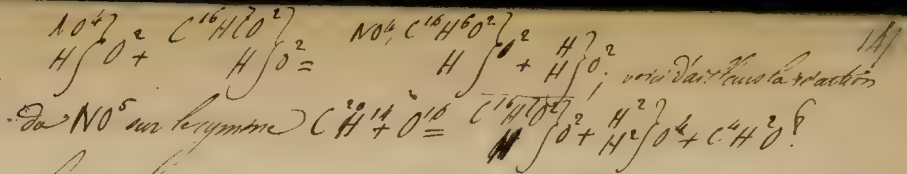 NO⁴} O² + C¹⁶H⁷O²} O² = NO⁴, C¹⁶H⁶O²} O² + H} O²
H H H H ; voici d'ailleurs la réaction
de NO⁵ sur le cymène C²⁰H¹⁴ + O¹⁶ = C¹⁶H⁷O²} O² + H²} O⁴ + C⁴H²O⁸
H H²